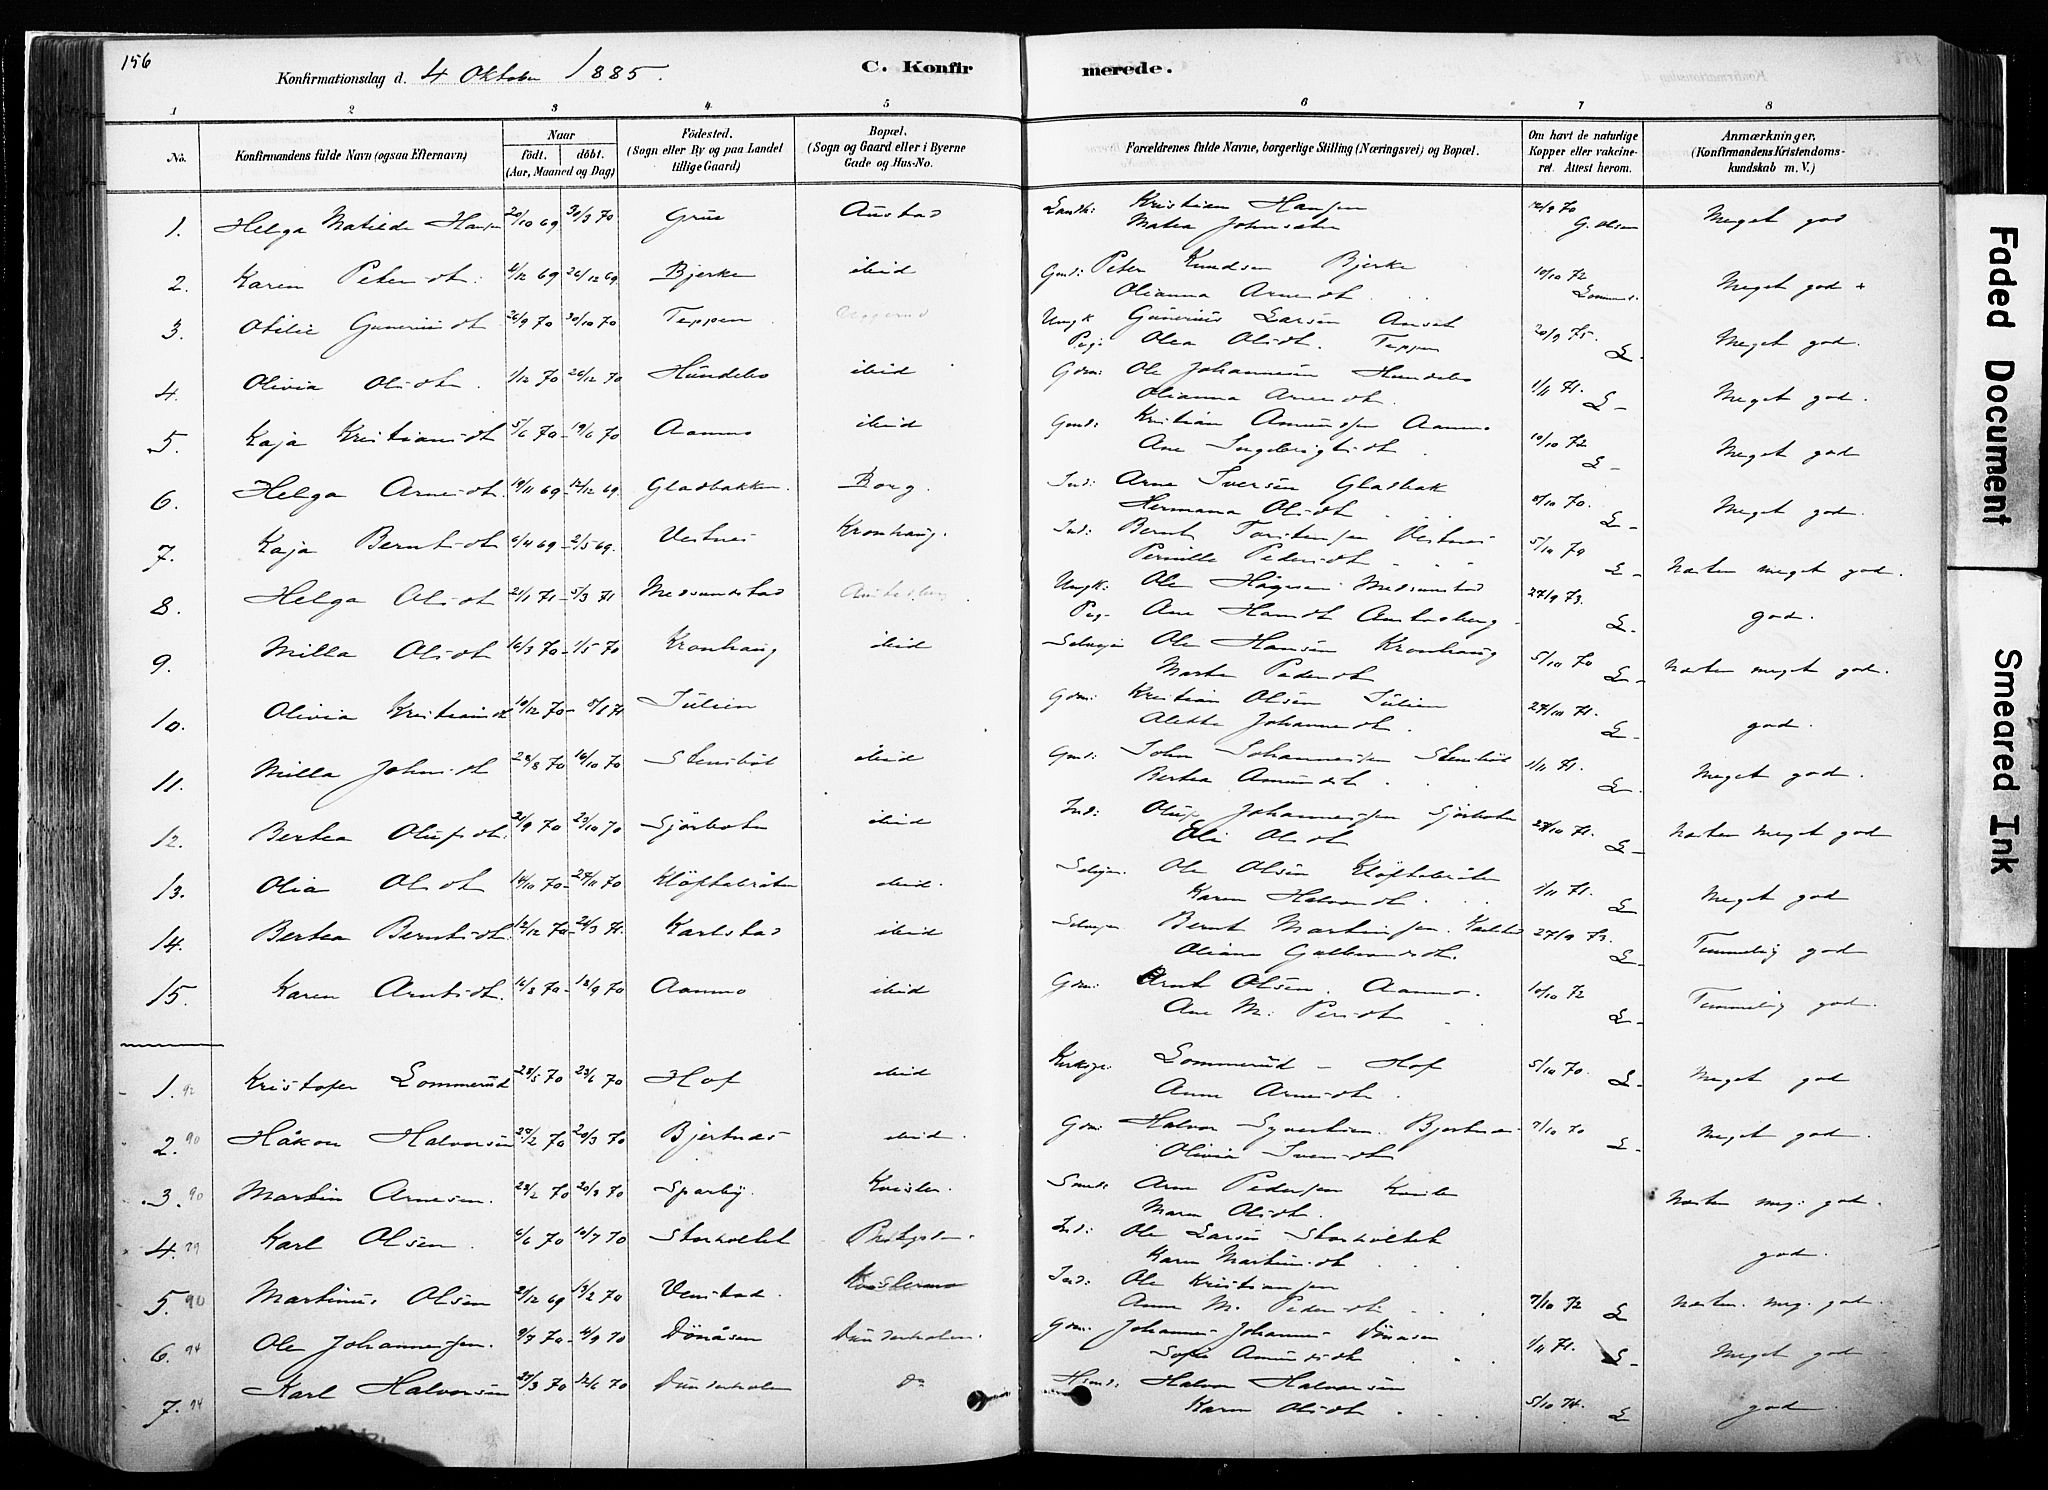 156
Konfirmationsdag d. 4 Oktober 1885.
C. Konfir
merede.
1 2 3 4 5 6 7 8
No.
Konfirmandens fulde Navn (ogsaa Efternavn)
Naar
födt. döbt.
(Aar, Maaned og Dag)
Födested.
(Sogn eller By og paa Landet
tillige Gaard)
Bopæl.
(Sogn og Gaard eller i Byerne
Gade og Hus-No.
Forældrenes fulde Navne, borgerlige Stilling (Næringsvei) og Bopæl.
Om havt de naturlige
Kopper eller vakcine-
ret. Attest herom.
Anmærkninger.
(Konfirmandens Kristendoms-
kundskab m. V.)
1. Helga Matilde Hansen 20/10 69 30/3 70 Grue Austad Kristian Hansen 12/9 70 Meget god
G. Olsen
2. Karen Petersdt. 4/12 69 26/12 69 Bjerke ibid Gmd: Peter Knudsen Bjerke 10/10 72 Meget god +
Olianna Arnesdt.
3. Otilie Guneriusdt 26/9 70 30/10 70 Teppen Ungk Gunerius Larsen 20/9 75. Meget god.
Pig: Olea Olsdt. Teppen L.
4. Olivia Olsdt. 1/12 70 26/12 70 Hundebo ibid Gdm: Ole Johannesen Hundebo 1/11 71. Meget god.
Olianna Arnesdt. L-
5. Kaja Kristiansdt 5/6 70 19/6 70 Aamo ibid Gmd: Kristian Amundsen Aamo 10/10 72 Meget god
Ane Ingebrigtsdt. L-
6. Helga Arnesdt. 19/11 69 12/12 69. Gladbakken. Borg. Ind: Arne Iversen Gladbak 8/10 70. Meget god.
Hermana Olsdt L-
7. Kaja Berntsdt 6/4 69 2/5 69. Vestnes Kronhaug. Ind: Bernt Torstensen Vestnes 5/10 70 Næsten meget god.
Pernille Pedersdt L-
8. Helga Olsdt 21/1 71 5/3 71 Medsundstad Ungk: Ole Haagesen Medsundstad 27/9 73. god.
Pig- Ane Hansdt L-
9. Milla Olsdt 16/3 70 1/5 70 Kronhaug ibid Selvejer Ole Hansen Kronhaug 5/10 70 Næsten meget god.
Marte Pedersdt L-
10. Olivia Kristiansdt 10/12 70 8/1 71 Julien Gdm: Kristian Olsen Julien 27/10 71. god.
Alette Johannesdt. L-
11. Milla Johnsdt 28/8 70 16/10 70 Stensböl ibid Gmd: John Johannessen Stensböl 1/11 71. Meget god.
Bertea Amundsdt. L-
12. Bertea Olufsdt. 21/9 70 23/10 70 Sjörboten ibid Ind: Oluf Johannessen Sjörboten 27/10 71. Næsten meget god
Oli Olsdt L-
13. Olia Olsdt 14/10 70 27/11 70 Klöftebråten ibid. Selvejer Ole Olsen Klöftebråten 1/11 71. Meget god
Karen Halvorsdt L-
14. Bertea Berntsdt. 12/12 70 26/3 71. Karlstad ibid Selvejer Bernt Martinsen Karlstad 27/9 73. Temmelig god
Oliana Gulbrandsdt. L-
15. Karen Arntsdt. 16/8 70 18/9 70 Aamo ibid Gdm: Arnt Olsen. Aamo. 10/10 72 Temmelig god.
Ane M. Persdt L-
1. 92 Kristofer Lommerud 28/5 70 23/6 70 Hof ibid Kirkesgr. Lommerud - Hof 5/10 70. Meget god
Anne Arnesdt. L-
2. 90 Håkon Halvorsen 22/2 70 20/3 70 Bjertnæs ibid. Gdm: Halvor Syvertsen Bjertnæs 7/10 70 Meget god.
Olivia Iversdt L-
3. 90 Martin Arnesen. 23/2 70 20/3 70 Sparby Kvislen. Smed: Arne Pedersen Kvislen Næsten meg. god.
Maren Olsdt.
4. 79 Karl Olsen. 6/6 70 10/7 70 Storholtet Prestgden. Ind: Ole Larsen Storholtet god.
Karen Martinsdt
5. 90 Martinus Olsen 27/12 69 13/2 70 Venstad. Kvislermo Ind: Ole Kristiansen Næsten. meg. god.
Anne M. Pedersdt. 7/10 72 L
6. 94 Ole Johannessen. 9/7 70 4/9 70 Dönåsen Dunderholen. Gdm: Johannes Johannes- Dönåsen 1/11 71. Meget god
Sofie Amundsdt L-
7. 74 Karl Halvorsen 27/3 70 12/6 70 Dunderholen Do Hsmd: Halvor Halvorsen 5/10 74. god.
Karen Olsdt L
Faded Document
Smeared Ink